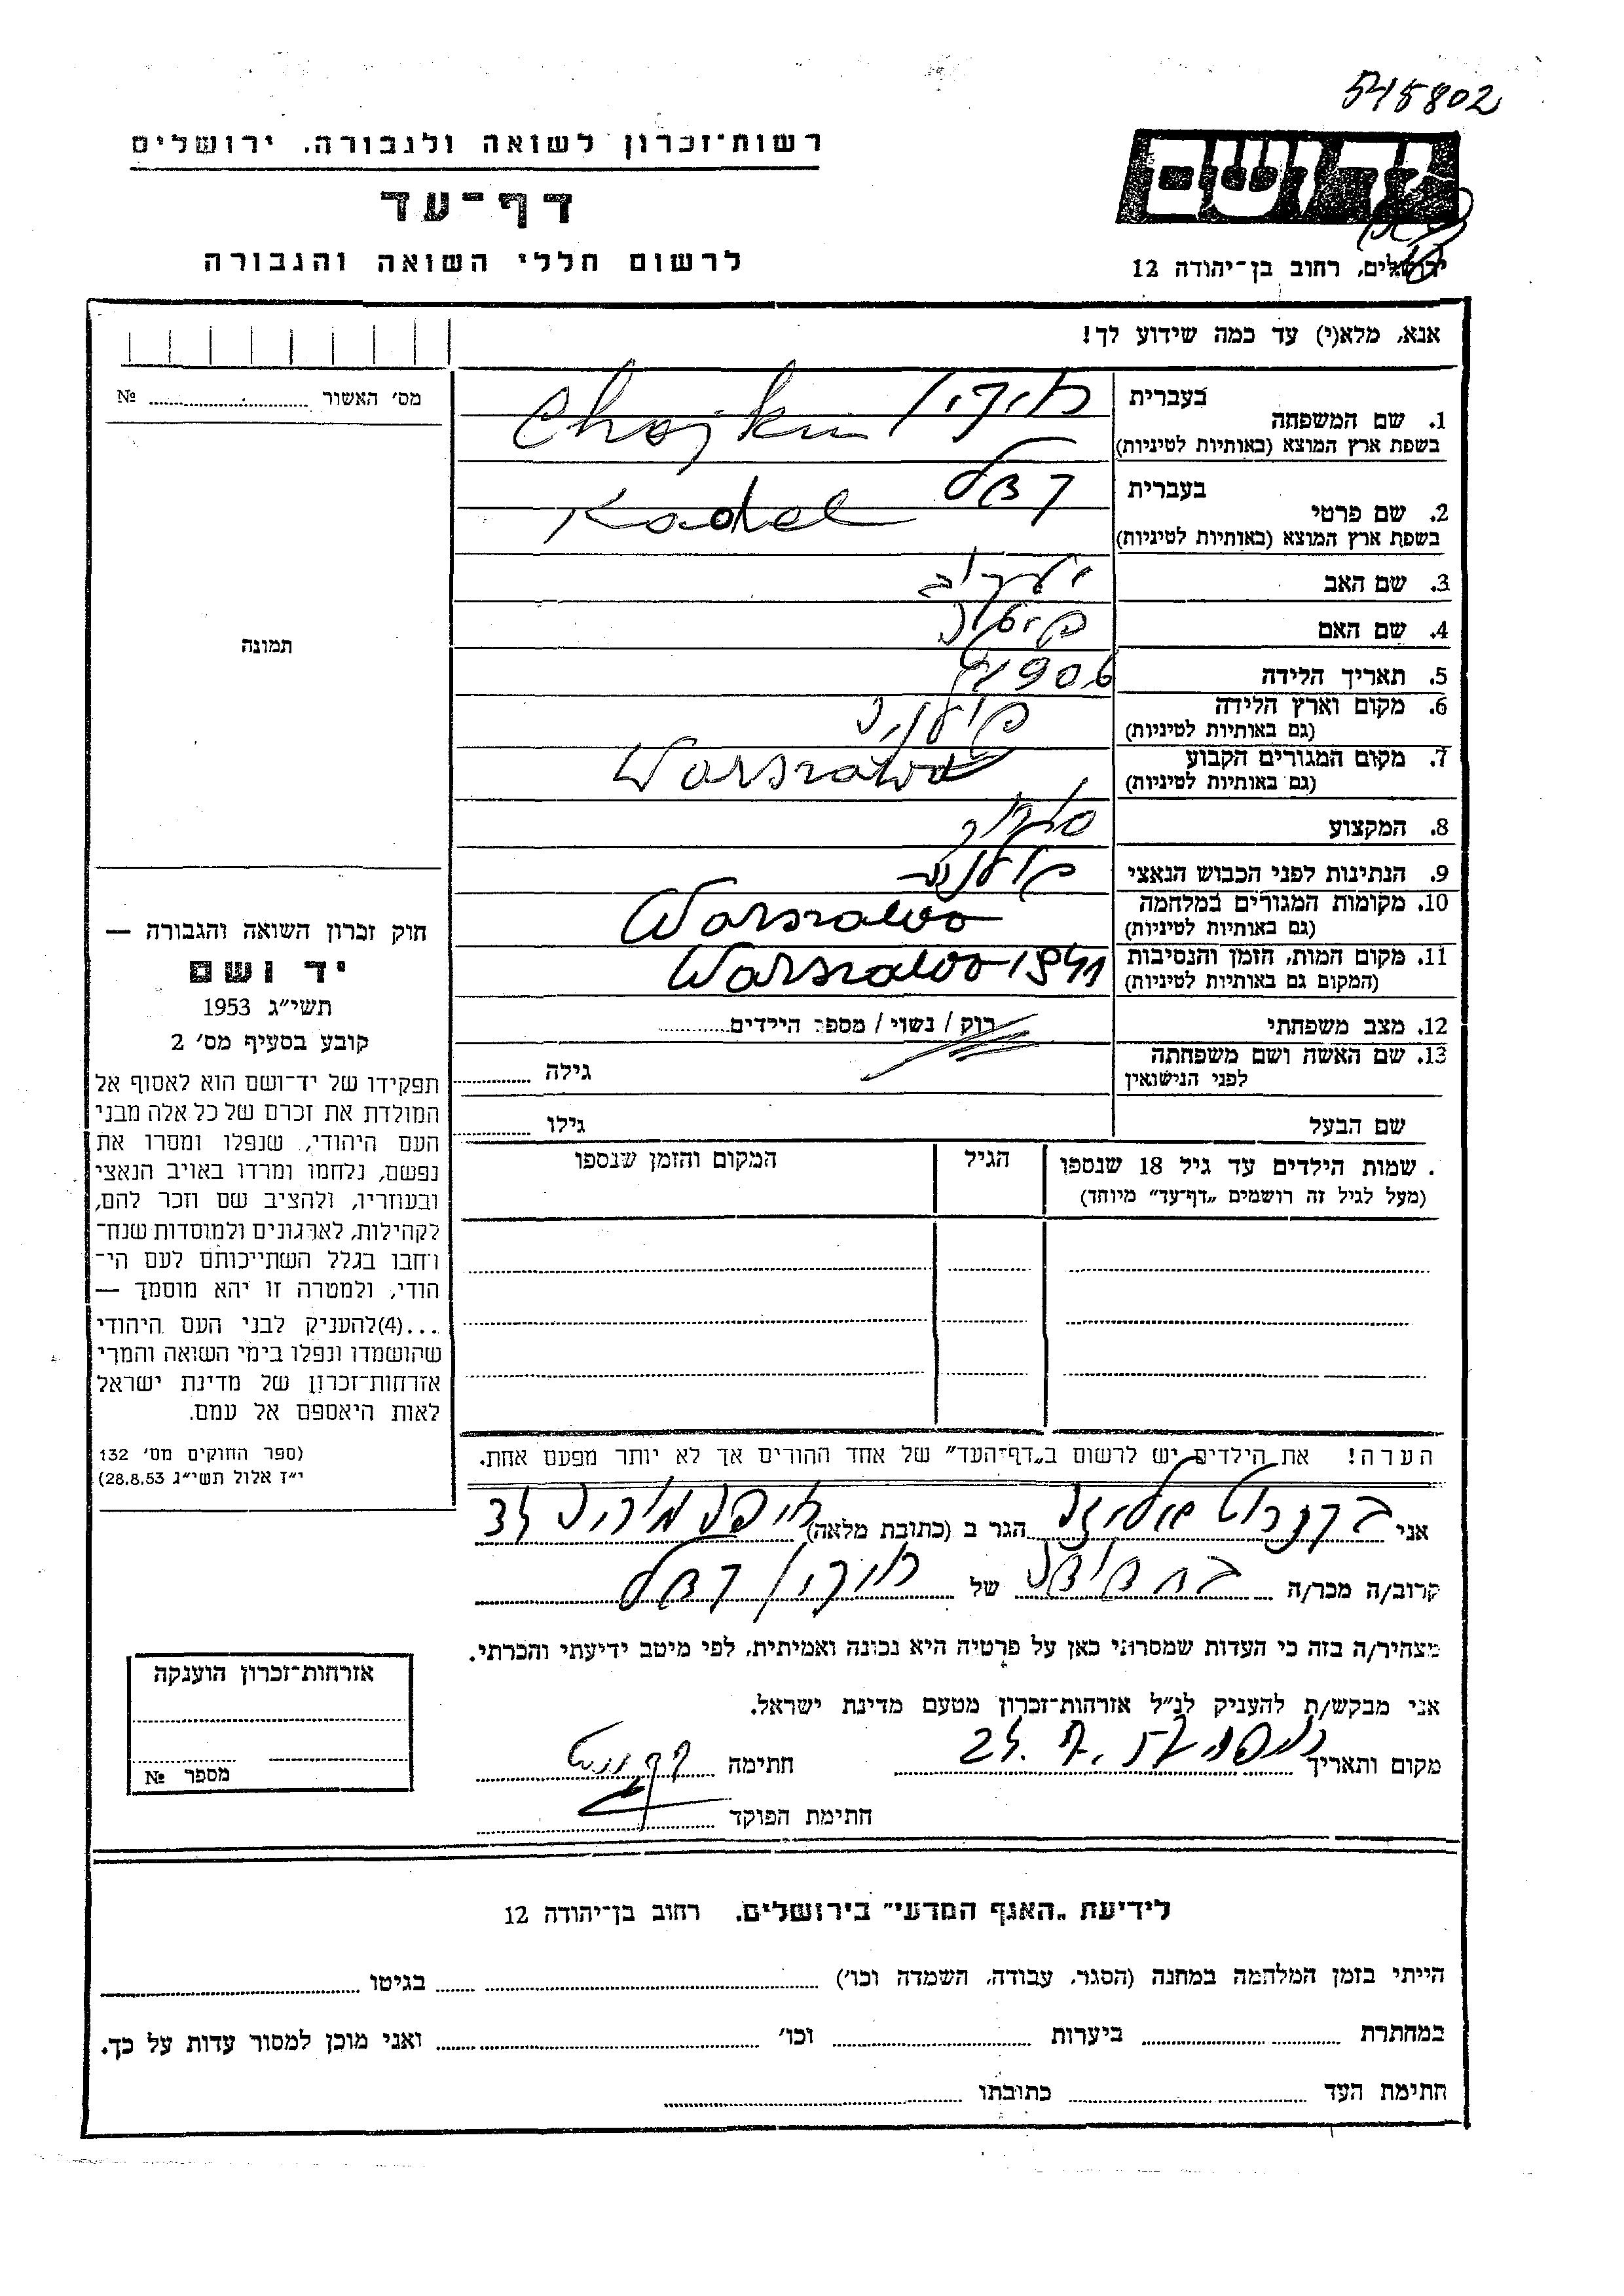 545802
רשות־זכרון לשואה ולגבורה, ירושלים
דף־עד
לרשום חללי השואה והגבורה
יד ושם
ירושלים, רחוב בן־יהודה 12
אנא, מלא(י) עד כמה שידוע לך!
מס׳ האשור № 
תמונה
1. שם המשפחה בעברית חייקין
בשפת ארץ המוצא (באותיות לטיניות) Chajkin
2. שם פרטי בעברית
בשפת ארץ המוצא (באותיות לטיניות) Kadel
3. שם האב יעקוב
4. שם האם
5. תאריך הלידה 1906
6. מקום וארץ הלידה פולניה
(גם באותיות לטיניות)
7. מקום המגורים הקבוע Warszawa
(גם באותיות לטיניות)
8. המקצוע
9. הנתינות לפני הכבוש הנאצי
10. מקומות המגורים במלחמה Warszawa
(גם באותיות לטיניות)
11. מקום המות, הזמן והנסיבות Warszawa 1941
(המקום גם באותיות לטיניות)
12. מצב משפחתי רוק / נשוי / מספר הילדים
13. שם האשה ושם משפחתה לפני הנישואין גילה
שם הבעל גילו
שמות הילדים עד גיל 18 שנספו הגיל המקום והזמן שנספו
(מעל לגיל זה רושמים „דף־עד״ מיוחד)
חוק זכרון השואה והגבורה —
יד ושם
תשי״ג 1953
קובע בסעיף מס׳ 2
תפקידו של יד־ושם הוא לאסוף אל
המולדת את זכרם של כל אלה מבני
העם היהודי, שנפלו ומסרו את
נפשם, נלחמו ומרדו באויב הנאצי
ובעוזריו, ולהציב שם וזכר להם,
לקהילות, לארגונים ולמוסדות שנח־
רבו בגלל השתייכותם לעם הי־
הודי, ולמטרה זו יהא מוסמך —
...(4)להעניק לבני העם היהודי
שהושמדו ונפלו בימי השואה והמרי
אזרחות־זכרון של מדינת ישראל
לאות היאספם אל עמם.
(ספר החוקים מס׳ 132
י״ז אלול תשי״ג 28.8.53)
הערה! את הילדים יש לרשום ב„דף־העד״ של אחד ההורים אך לא יותר מפעם אחת.
אני הגר ב (כתובת מלאה) חיפה
קרוב/ה מכר/ה של חייקין
מצהיר/ה בזה כי העדות שמסרתי כאן על פרטיה היא נכונה ואמיתית, לפי מיטב ידיעתי והכרתי.
אני מבקש/ת להעניק לנ״ל אזרחות־זכרון מטעם מדינת ישראל.
מקום ותאריך חתימה
חתימת הפוקד
אזרחות־זכרון הוענקה
מספר №
לידיעת „האגף המדעי״ בירושלים, רחוב בן־יהודה 12
הייתי בזמן המלחמה במחנה (הסגר, עבודה, השמדה וכו׳) בגיטו
במחתרת ביערות וכו׳ ואני מוכן למסור עדות על כך.
חתימת העד כתובתו